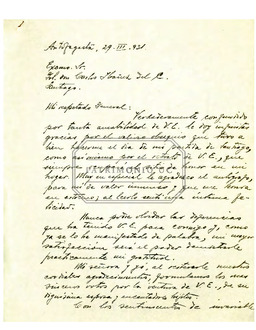 Antofagasta, 29. III. 931
Excmo. Sr.
Dn. Carlos Ibáñez del C.
Santiago.
Mi respetado General:
Verdaderamente confundido
por tanta amabilidad de V.E. le doy infinitas
gracias por el valioso obsequio que tuvo a
bien hacerme el día de mi partida de Santiago,
como asimismo por el retrato de V.E., que
siempre el puesto de honor en mi
hogar. Muy en especial le agradezco el autógrafo,
para mí de valor inmenso y que me honra
en exceso; al leerlo sentí una íntima fe-
licidad.
PATRIMONIO UC
Nunca podré olvidar las deferencias
que ha tenido V.E. para conmigo y, como
ya se lo he manifestado de palabra, mi mayor
satisfacción será el poder demostrarle
prácticamente mi gratitud.
Mi señora y yo, al reiterarle nuestros
cordiales agradecimientos, formulamos los más
sinceros votos por la ventura de V.E., de su
dignísima esposa y encantadores hijitos.
Con los sentimientos de invariable